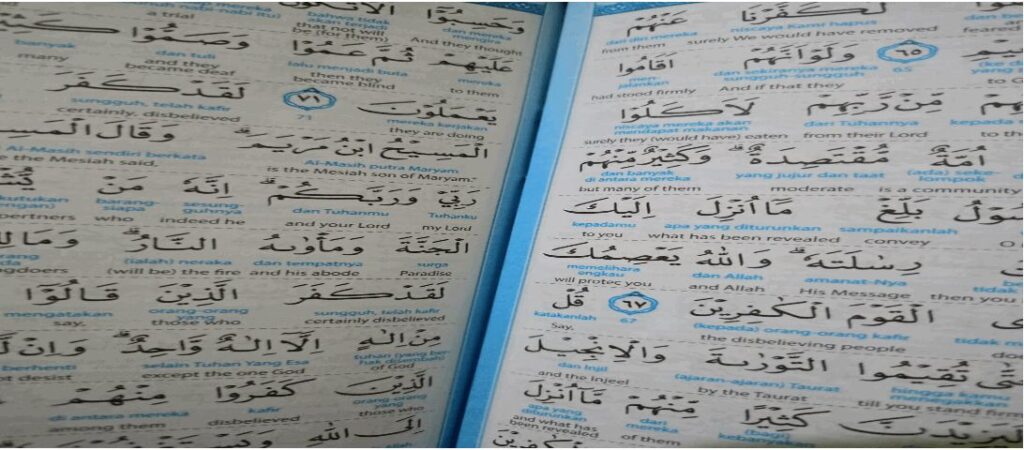 لَكَفَّرْنَا عَنْهُمْ
dan (di) mereka niscaya Kami hapus
from them surely We would have removed feared
٦٥ وَلَوْ اَنَّهُمْ اَقَامُوا
men-jalankan dan sekiranya mereka sungguh-sungguh 65
had stood firmly And if that they
مِّنْ رَّبِّهِمْ لَاَكَلُوْا
niscaya mereka akan mendapat makanan dan Tuhannya kepada
surely they (would have) eaten from their Lord to
اُمَّةٌ مُّقْتَصِدَةٌ ۗ وَكَثِيْرٌ مِّنْهُمْ
dan banyak di antara mereka yang jujur dan taat (ada) seke-lompok
but many of them moderate is a community
بَلِّغْ مَآ اُنْزِلَ اِلَيْكَ
kepadamu apa yang diturunkan sampaikanlah
to you what has been revealed convey O
رِسٰلَتَهٗ ۗ وَاللّٰهُ يَعْصِمُكَ
memelihara engkau dan Allah amanat-Nya
will protect you and Allah His Message then you
الْقَوْمَ الْكٰفِرِيْنَ ٦٧ قُلْ
katakanlah 67 (kepada) orang-orang kafir tidak
Say, the disbelieving people
تُقِيْمُوا التَّوْرٰىةَ وَالْاِنْجِيْلَ
dan Injil (ajaran-ajaran) Taurat hingga kamu
and the Injeel by the Taurat till you stand firm
كَثِيْرًا مِّنْهُمْ مَّآ اُنْزِلَ
apa yang diturunkan dari mereka (bagi) kebanyakan
and what has been revealed of them
وَحَسِبُوْٓا
dan mereka mengira bahwa tidak akan terjadi
And they thought that not will be (for them) a trial
عَلَيْهِمْ ثُمَّ عَمُوْا وَصَمُّوْا
mereka lalu menjadi buta dan tuli banyak
to them then they became blind and they became deaf many
يَعْمَلُوْنَ ٧١ لَقَدْ كَفَرَ
mereka kerjakan 71 sungguh, telah kafir
they are doing certainly, disbelieved
الْمَسِيْحُ ابْنُ مَرْيَمَ ۗ وَقَالَ
Al-Masih putra Maryam Al-Masih sendiri berkata
is the Mesiah son of Maryam." the Mesiah said,
رَبِّيْ وَرَبَّكُمْ ۗ اِنَّهٗ مَنْ
Tuhanku dan Tuhanmu sesung-guhnya barang-siapa
my Lord and your Lord indeed he who
الْجَنَّةَ وَمَأْوٰىهُ النَّارُ ۗ
surga dan tempatnya (ialah) neraka
Paradise and his abode (will be) the fire
لَقَدْ كَفَرَ الَّذِيْنَ قَالُوْٓا
sungguh, telah kafir orang-orang yang mengatakan
certainly disbelieved those who say,
مِنْ اِلٰهٍ اِلَّآ اِلٰهٌ وَّاحِدٌ ۗ وَاِنْ
tuhan (yang ber-hak disembah) selain Tuhan Yang Esa berhenti
of God except the one God not desist
الَّذِيْنَ كَفَرُوْا مِنْهُمْ
orang-orang yang kafir di antara mereka
those who disbelieved among them
اِلَى اللّٰهِ